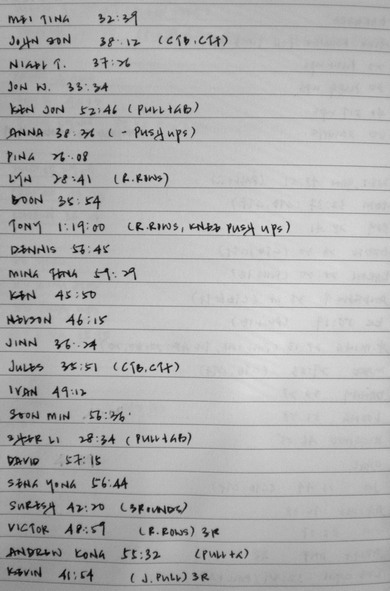 MEI TING 32:39
JOHN SON 38:12 (CTB, CTH)
NIGEL T. 37:26
JON W. 33:34
KEN JON 52:46 (PULL+AB)
ANNA 38:26 (- PUSH UPS)
PING 26:08
LYN 28:41 (R.ROWS)
BOON 35:54
TONY 1:19:00 (R.ROWS, KNEE PUSH UPS)
DENNIS 56:45
MING 59:29
KEN 45:50
NELSON 46:15
JINN 36:24
JULES 35:51 (CTB, CTH)
IVAN 49:12
SOON MIN 56:36
SHER LI 28:34 (PULL+AB)
DAVID 57:15
SENG YONG 56:44
SURESH 42:20 (3ROUNDS)
VICTOR 48:59 (R.ROWS) 3R
ANDREW KONG 55:32
KEVIN 41:54 (J.PULL) 3R